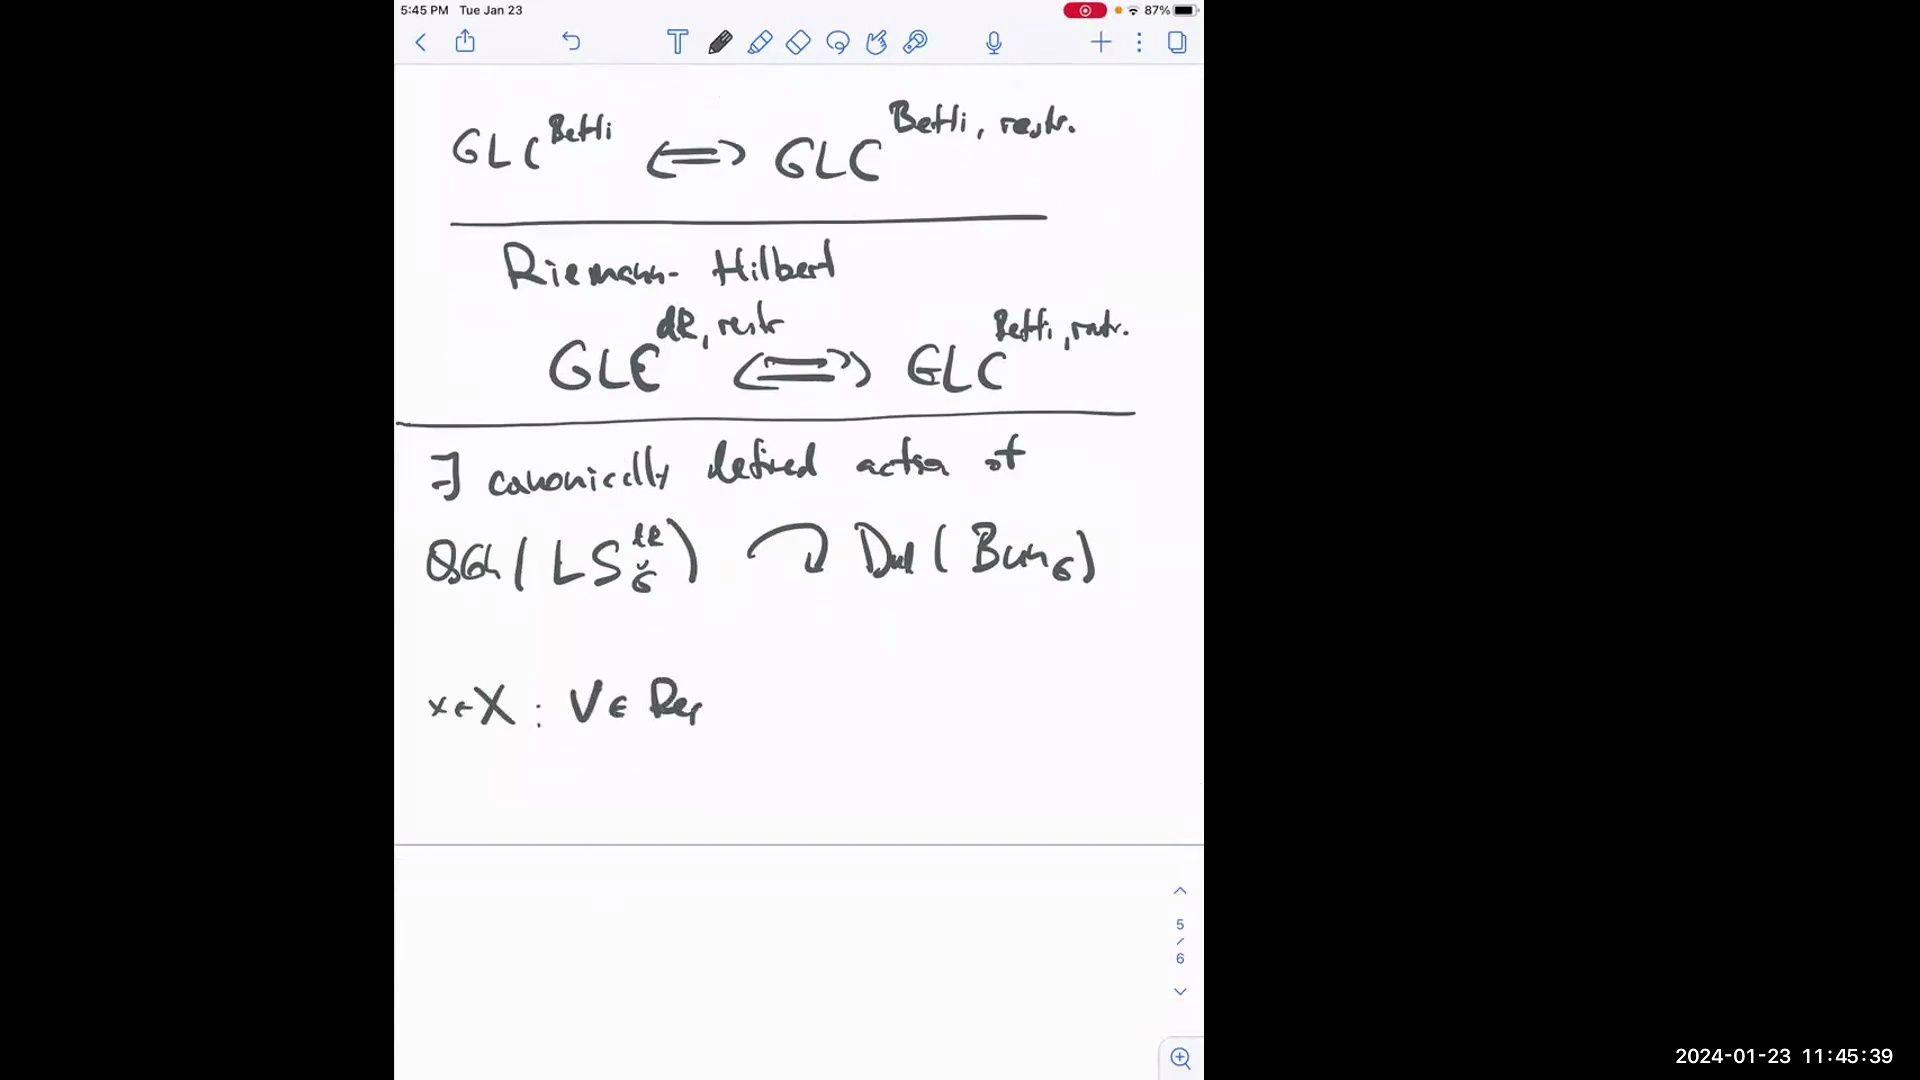 5:45 PM Tue Jan 23 87%
GLC^{Betti} ⇔ GLC^{Betti, restr.}
Riemann-Hilbert
GLC^{dR, restr} ⇔ GLC^{Betti, restr.}
∃ canonically defined action of
QCoh(LS_{Ǧ}^{dR}) ↷ Dmod(Bun_G)
x∈X : V∈ Rep
5
/
6
2024-01-23 11:45:39